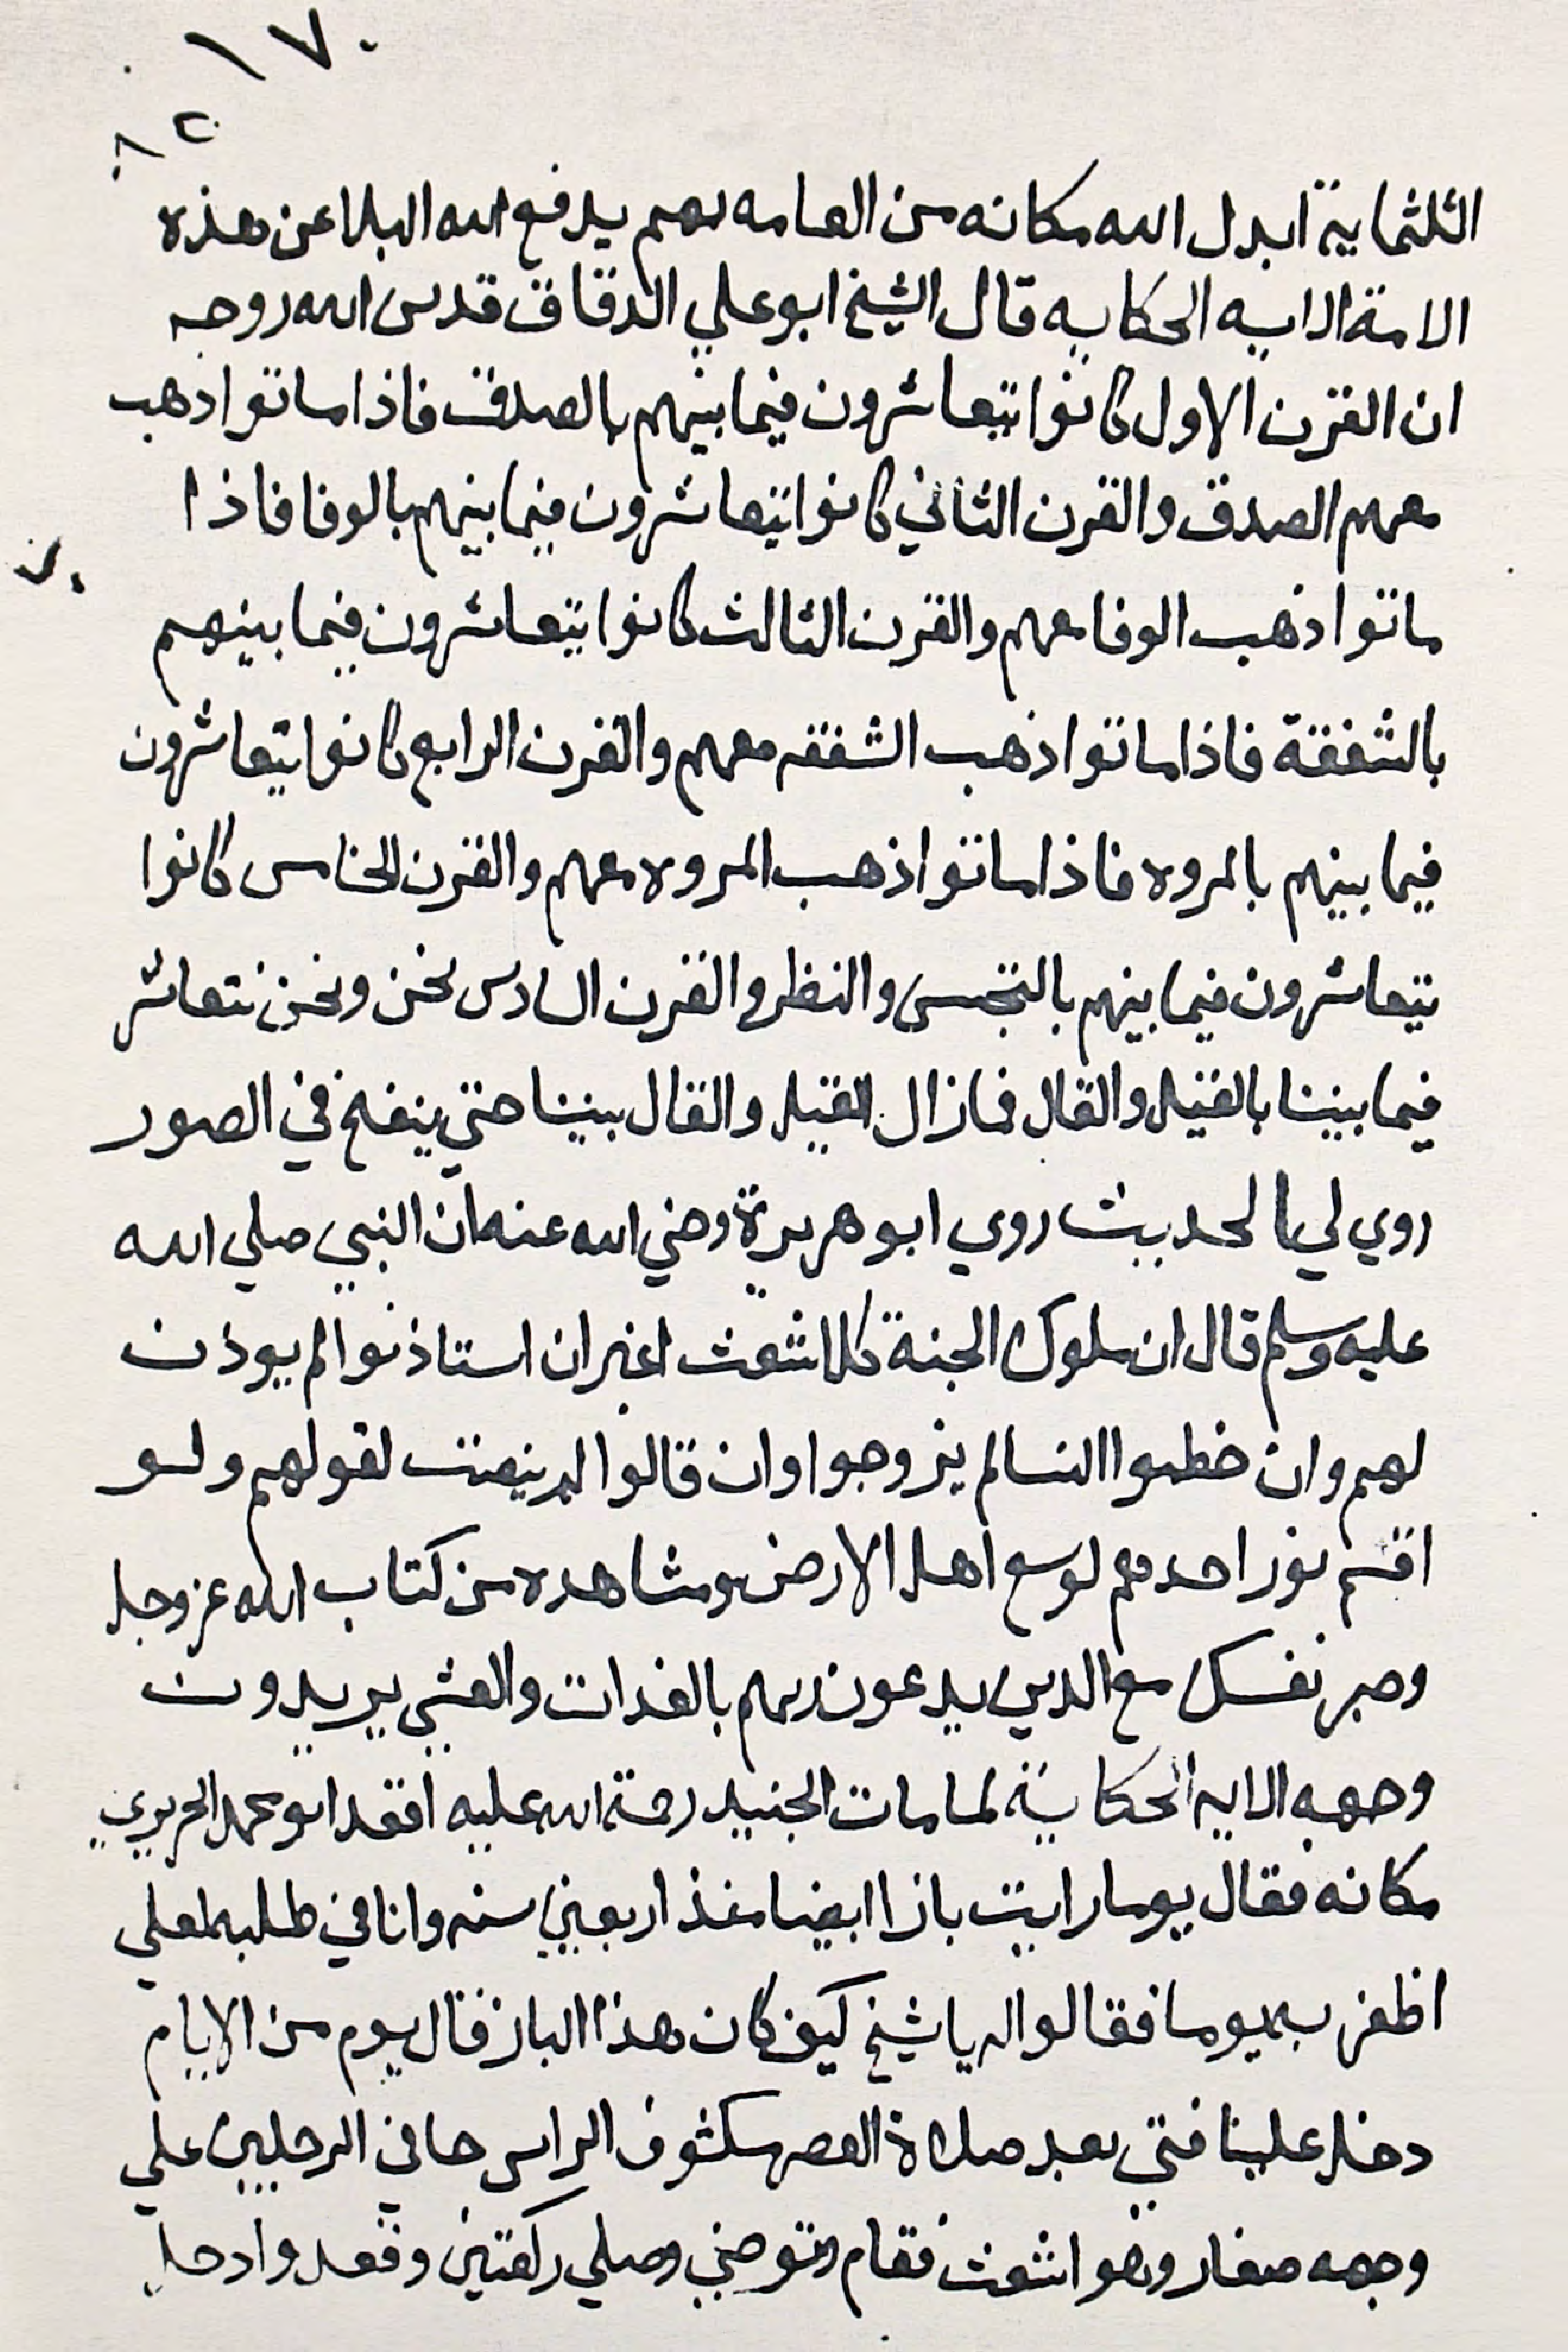 ١٧٠
٨٢
الثلثماية ابدل الله مكانه من العامه بهم يدفع الله البلا عن هذه
الامة الايه الحكايه قال الشيخ ابو علي الدقاق قدس الله روحه
ان القرن الاول كانوا يتعاشرون فيما بينهم بالصدق فاذا ماتوا ذهب
معهم الصدق والقرن الثاني كانوا يتعاشرون فيما بينهم بالوفا فاذا
ماتوا ذهب الوفا معهم والقرن الثالث كانوا يتعاشرون فيما بينهم
بالشفقة فاذا ماتوا ذهب الشفقه معهم والقرن الرابع كانوا يتعاشرون
فيما بينهم بالمروه فاذا ماتوا ذهب المروه معهم والقرن الخامس كانوا
يتعاشرون فيما بينهم بالتجسس والنظر والقرن السادس نحن ونحن نتعاشر
فيما بيننا بالقيل والقال فمازال القيل والقال بيننا حتي ينفخ في الصور
روي لي بالحديث روي ابو هريرة رضي الله عنه ان النبي صلي الله
عليه وسلم قال ان ملوك الجنة كلما شعث اغبر ان استاذنوا لم يوذن
لهم وان خطبوا النسا لم يزوجوا وان قالوا لم ينصت لقولهم ولو
اقسم نور احدهم لوسع اهل الارض ومشاهده من كتاب الله عز وجل
وصبر نفسك مع الدين يدعون ربهم بالغدات والعشي يريدون
وجهه الايه الحكاية لما مات الجنيد رحمة الله عليه افقد ابو محمد الحريري
مكانه فقال يوما رايت بازا ابيضا منذ اربعين سنه وانا في طلبه لعلي
اظفر به يوما فقالوا له يا شيخ كيف كان هذا الباز فقال يوم من الايام
دخل علينا فتي بعد صلاة العصر مكشوف الراس حافي الرجلين علي
وجهه صفار وهو اشعث فقام وتوضي وصلي ركعتين وقعد وادخل